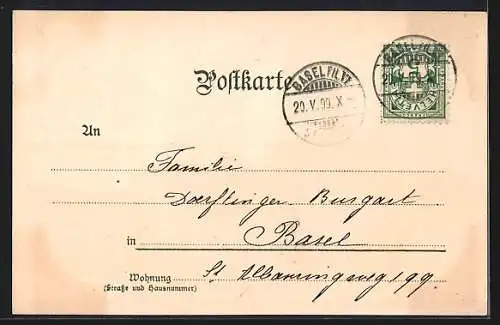 Postkarte
BASEL FIL. VI
20. V. 99. X
BASEL
HELVETIA
An
Familie
Darflinger Busgart
in Basel
Wohnung St Albanringweg 199
(Straße und Hausnummer)